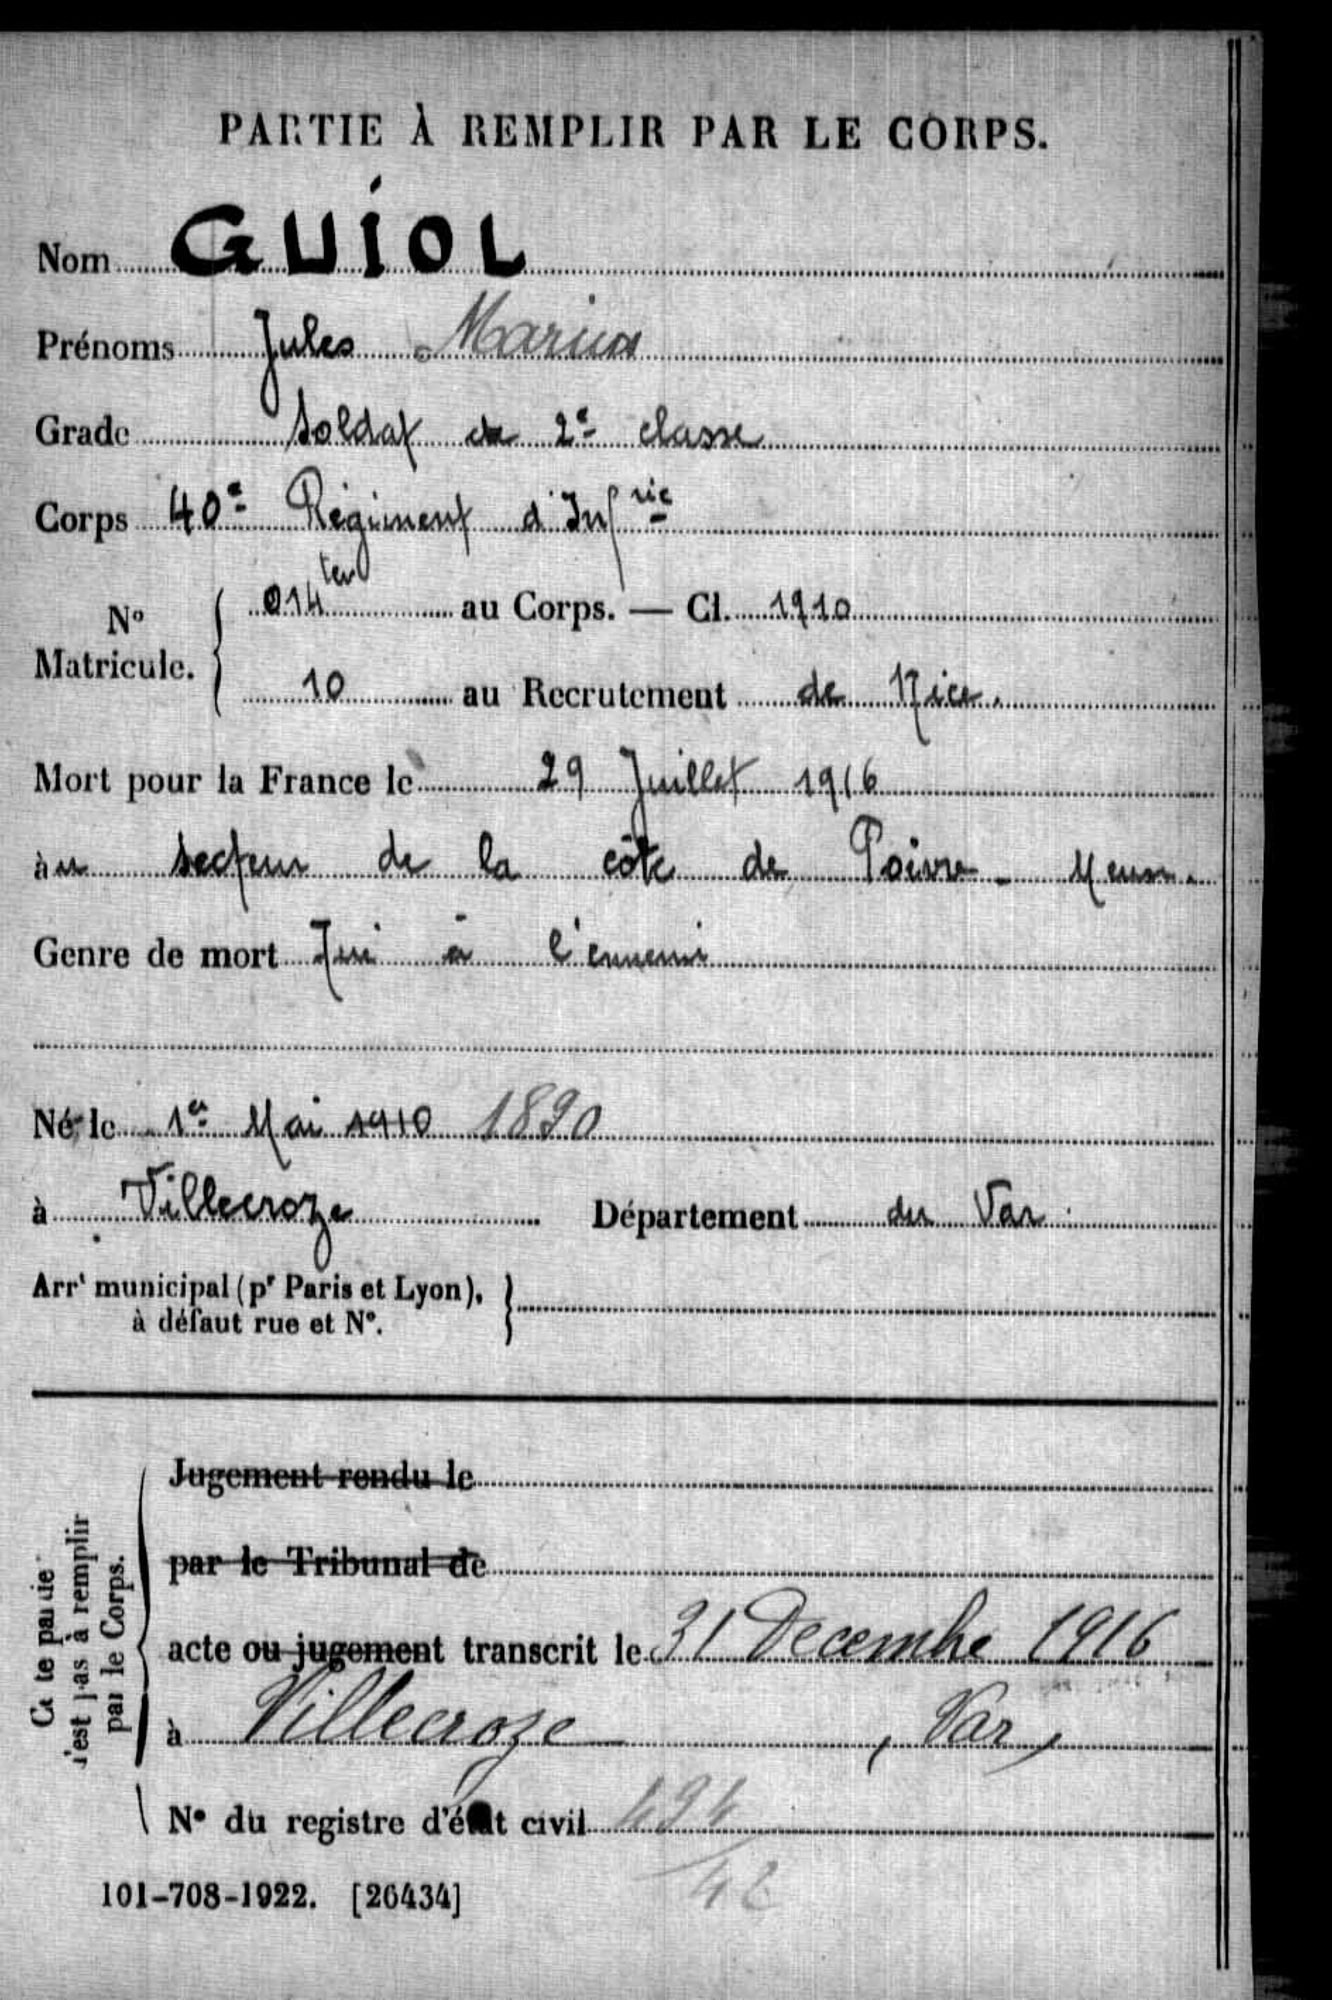 PARTIE À REMPLIR PAR LE CORPS.
Nom GUIOL
Prénoms Jules Marius
Grade Soldat de 2e classe
Corps 40e Régiment d'Infrie
014 ter au Corps. — Cl. 1910
No Matricule.
10 au Recrutement de Nice.
Mort pour la France le 29 Juillet 1916
au secteur de la côte de Poivre - Meuse.
Genre de mort Tué à l'ennemi
Né le 1er Mai 1910 1890
à Villecroze Département du Var
Arrt municipal (pr Paris et Lyon),
à défaut rue et No.
Jugement rendu le
par le Tribunal de
acte ou jugement transcrit le 31 Decembre 1916
à Villecroze, Var,
No du registre d'état civil
Cette partie
n'est pas à remplir
par le Corps.
101-708-1922. [26434]